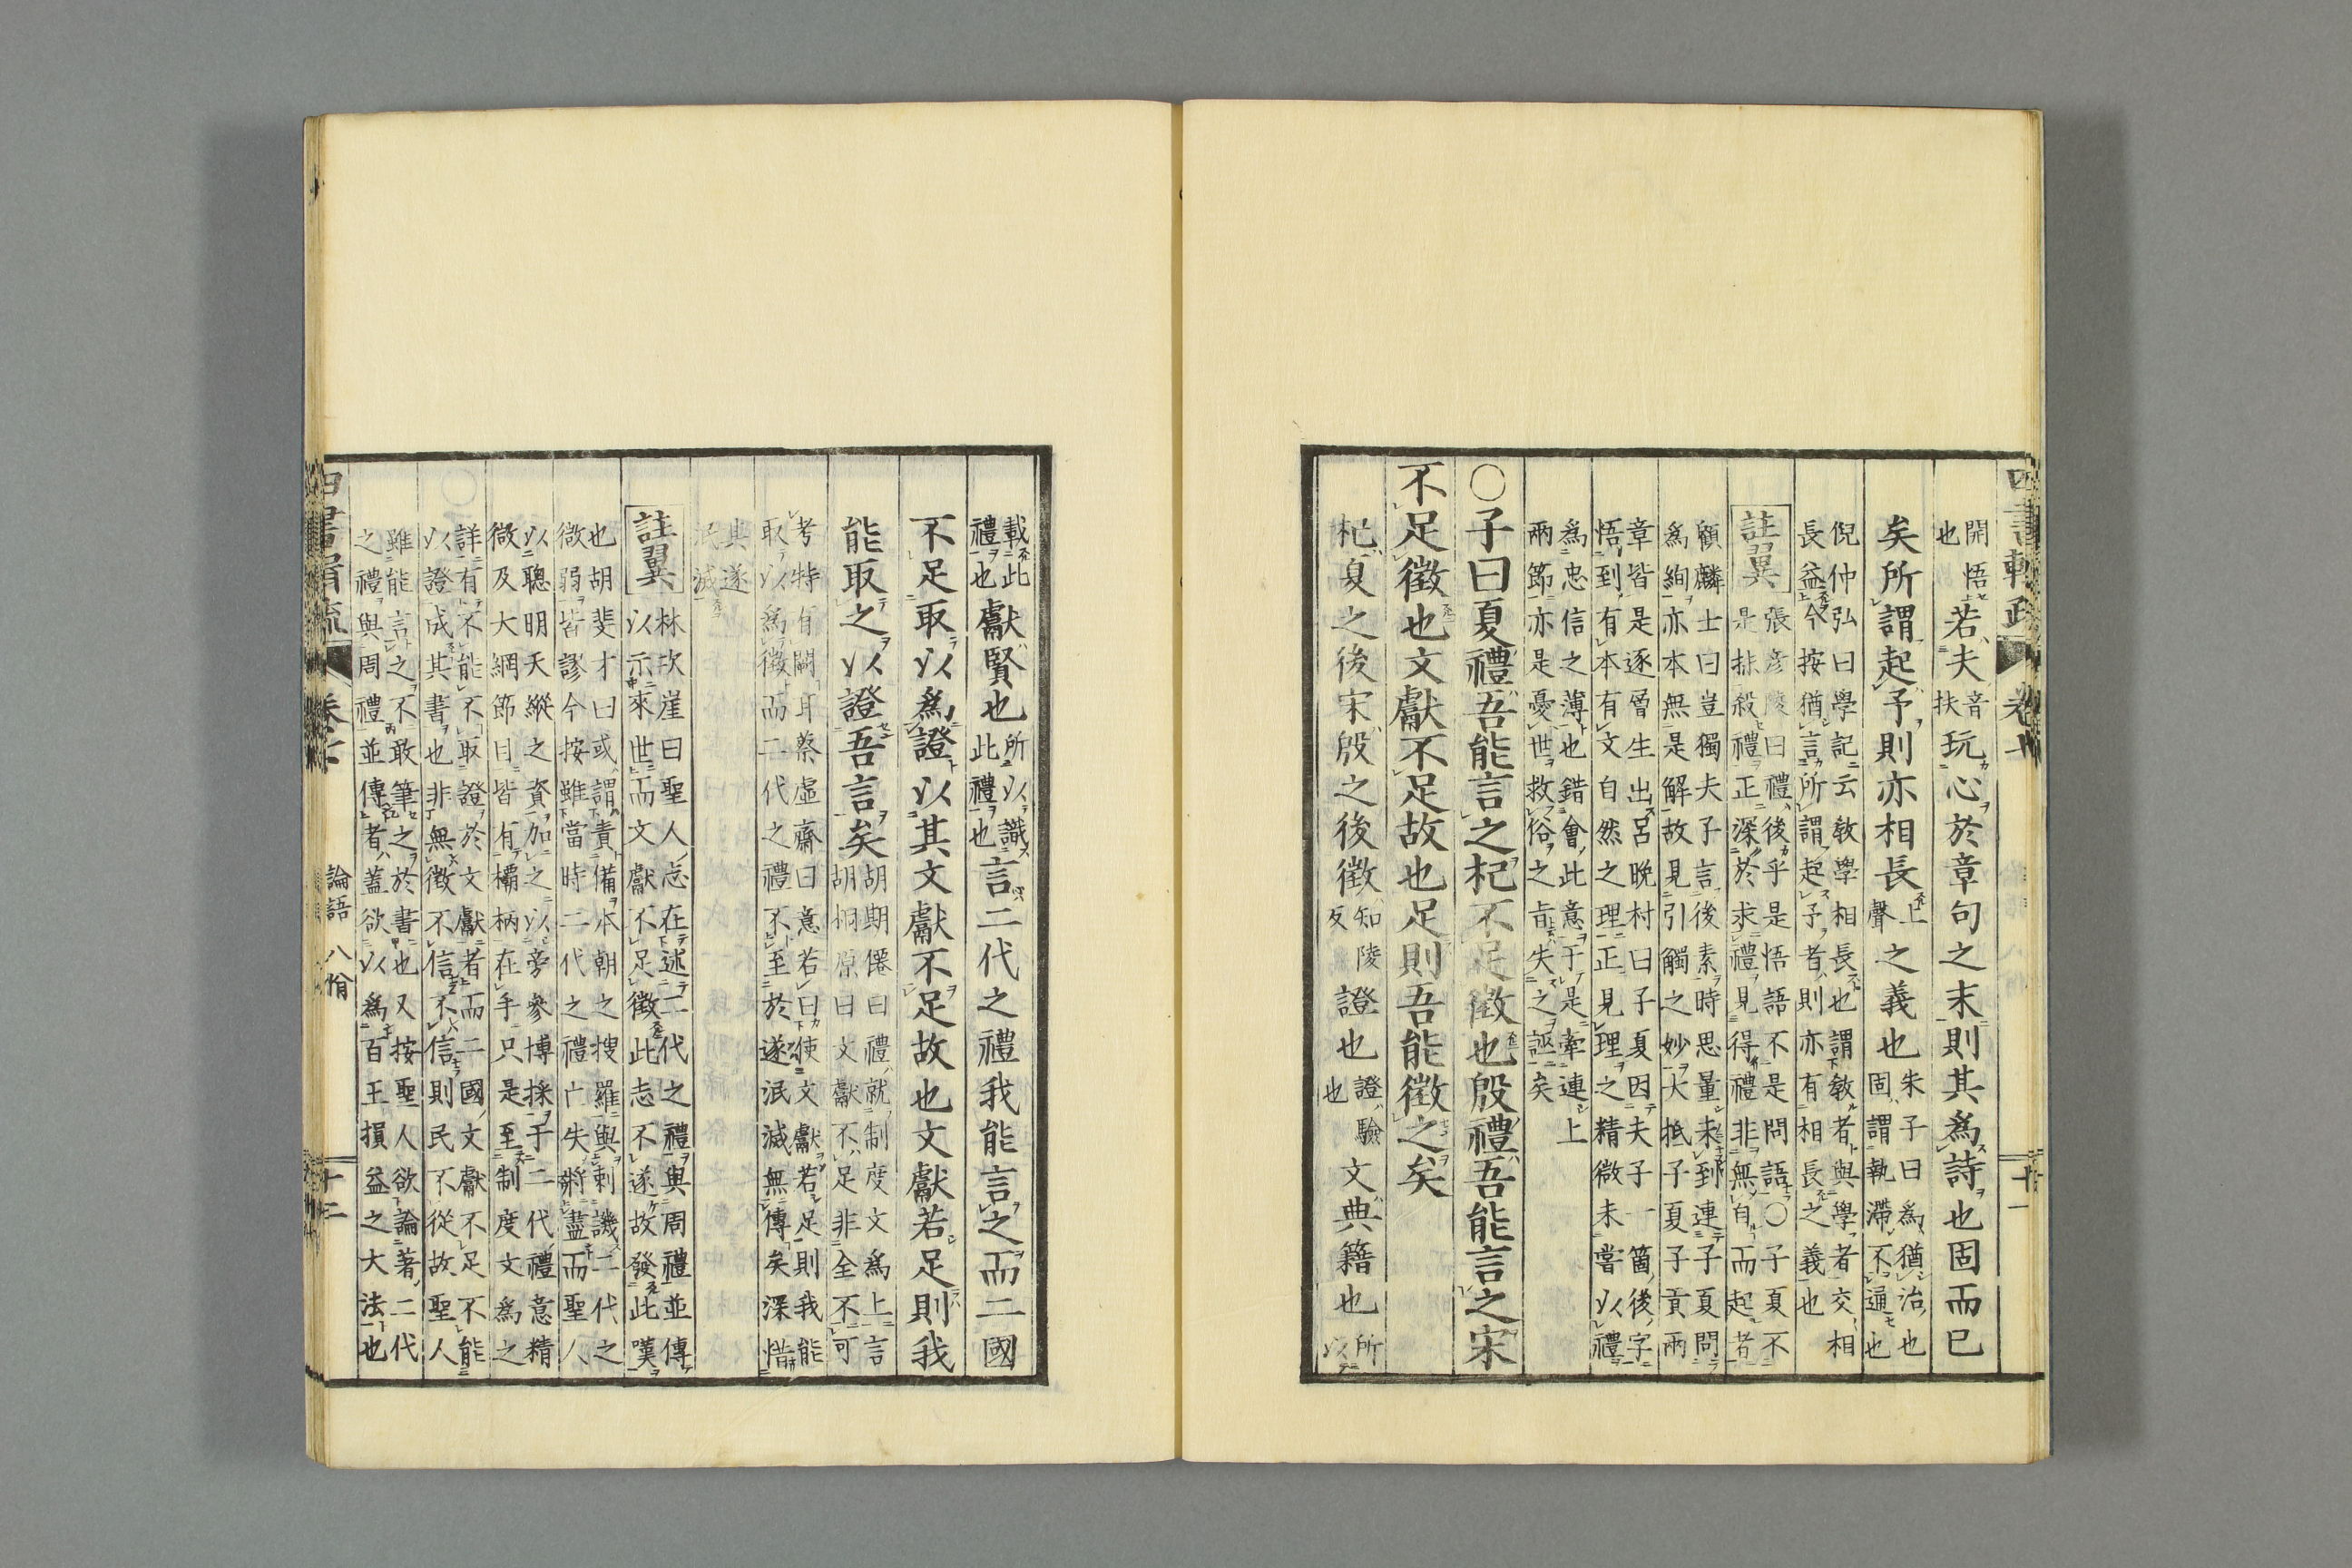 開悟
也
若夫
音
扶
玩心於章句之末則其爲詩也固而已
矣所謂起予則亦相長
上
聲
之義也
朱子曰爲猶治也
固謂執滯不通也
倪仲弘曰學記云敎學相長也謂敎者與學者交相
長益今按猶言所謂起予者則亦有相長之義也
註翼
張彦陵曰禮後乎是悟語不是問語〇子夏不
是抹殺禮正深於求禮見得禮非無自而起者
顧麟士曰豈獨夫子言後素時思量未到連子夏問
爲絢亦本無是解故見引觸之妙大抵子夏子貢兩
章皆是逐層生出呂晩村曰子夏因夫子一箇後字
悟到有本有文自然之理正見理之精微未嘗以禮
爲忠信之薄也錯會此意于是牽連上
兩節亦是憂世救俗之旨失之誣矣
〇子曰夏禮吾能言之杞不足徵也殷禮吾能言之宋
不足徵也文獻不足故也足則吾能徵之矣
杞夏之後宋殷之後徵
知陵
反
證也
證驗
也
文典籍也
所
以
載此
禮也
獻賢也
所以識
此禮也
言二代之禮我能言之而二國
不足取以爲證以其文獻不足故也文獻若足則我
能取之以證吾言矣
胡期僊曰禮就制度文爲上言
胡桐原曰文獻不足非全不可
考特有闕耳蔡虛齋曰意若曰使文獻若足則我能
取以爲徵而二代之禮不至於遂泯滅無傳矣深惜
其遂
泯滅
註翼
林次崖曰聖人志在述二代之禮與周禮並傳
以示來世而文獻不足徵此志不遂故發此嘆
也胡斐才曰或謂責備本朝之搜羅與刺譏二代之
微弱皆謬今按雖當時二代之禮亡失將盡而聖人
以聰明天縱之資加之以旁參博採于二代禮意精
微及大綱節目皆有欛柄在手只是至制度文爲之
詳有不能不取證於文獻者而二國文獻不足不能
以證成其書也非無徵不信不信則民不從故聖人
雖能言之不敢筆之於書也又按聖人欲論著二代
之禮與周禮並傳者蓋欲以爲百王損益之大法也
論語 八佾
十二